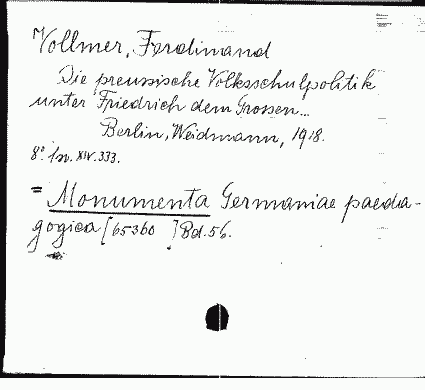 Vollmer, Ferdinand
Die preussische Volksschulpolitik
unter Friedrich dem Grossen...
Berlin, Weidmann, 1918.
8º. XIV.333.
= Monumenta Germaniae paeda-
gogica [65360 ] Bd.56.